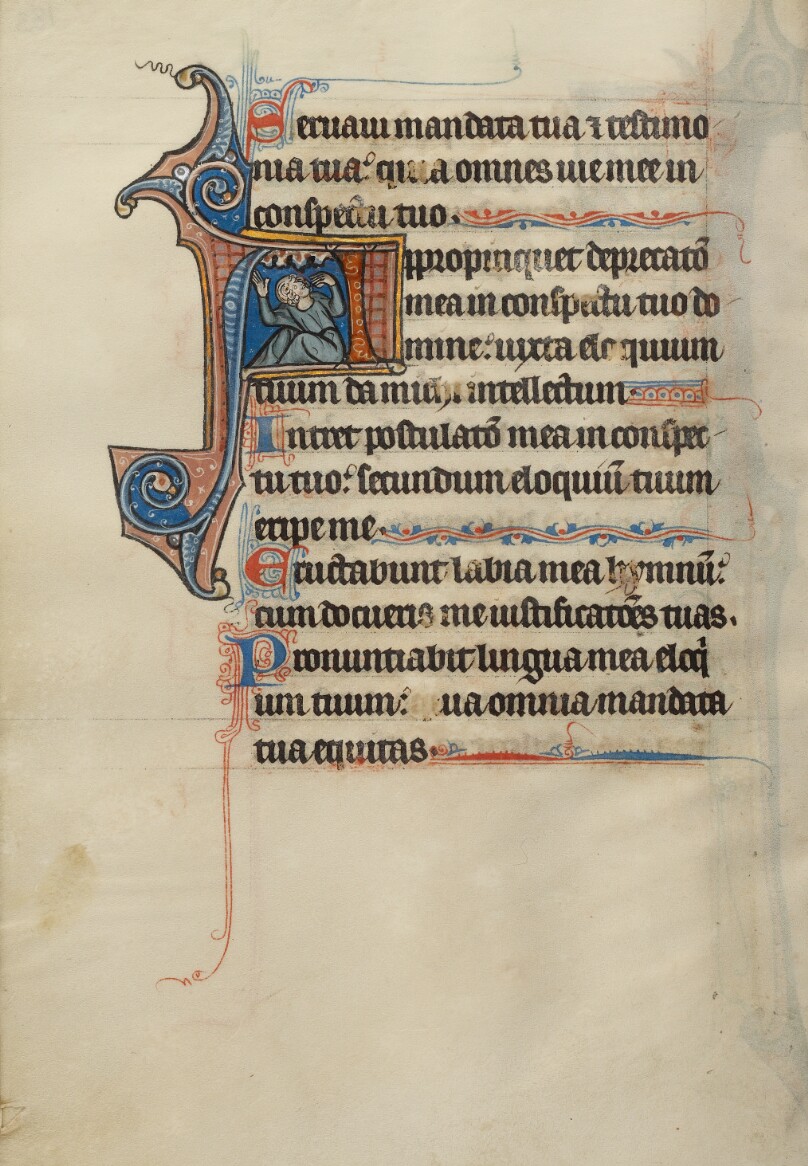 Seruaui mandata tua ⁊ testimo
nia tua: quia omnes uie mee in
conspectu tuo.
Appropinquet deprecatō
mea in conspectu tuo do
mine: iuxta eloquium
tuum da michi intellectum.
Intret postulatō mea in conspec
tu tuo: secundum eloquiū tuum
eripe me.
Eructabunt labia mea hymnū:
cum docueris me iustificatōes tuas.
Pronuntiabit lingua mea eloq̇
um tuum: ua omnia mandata
tua equitas.